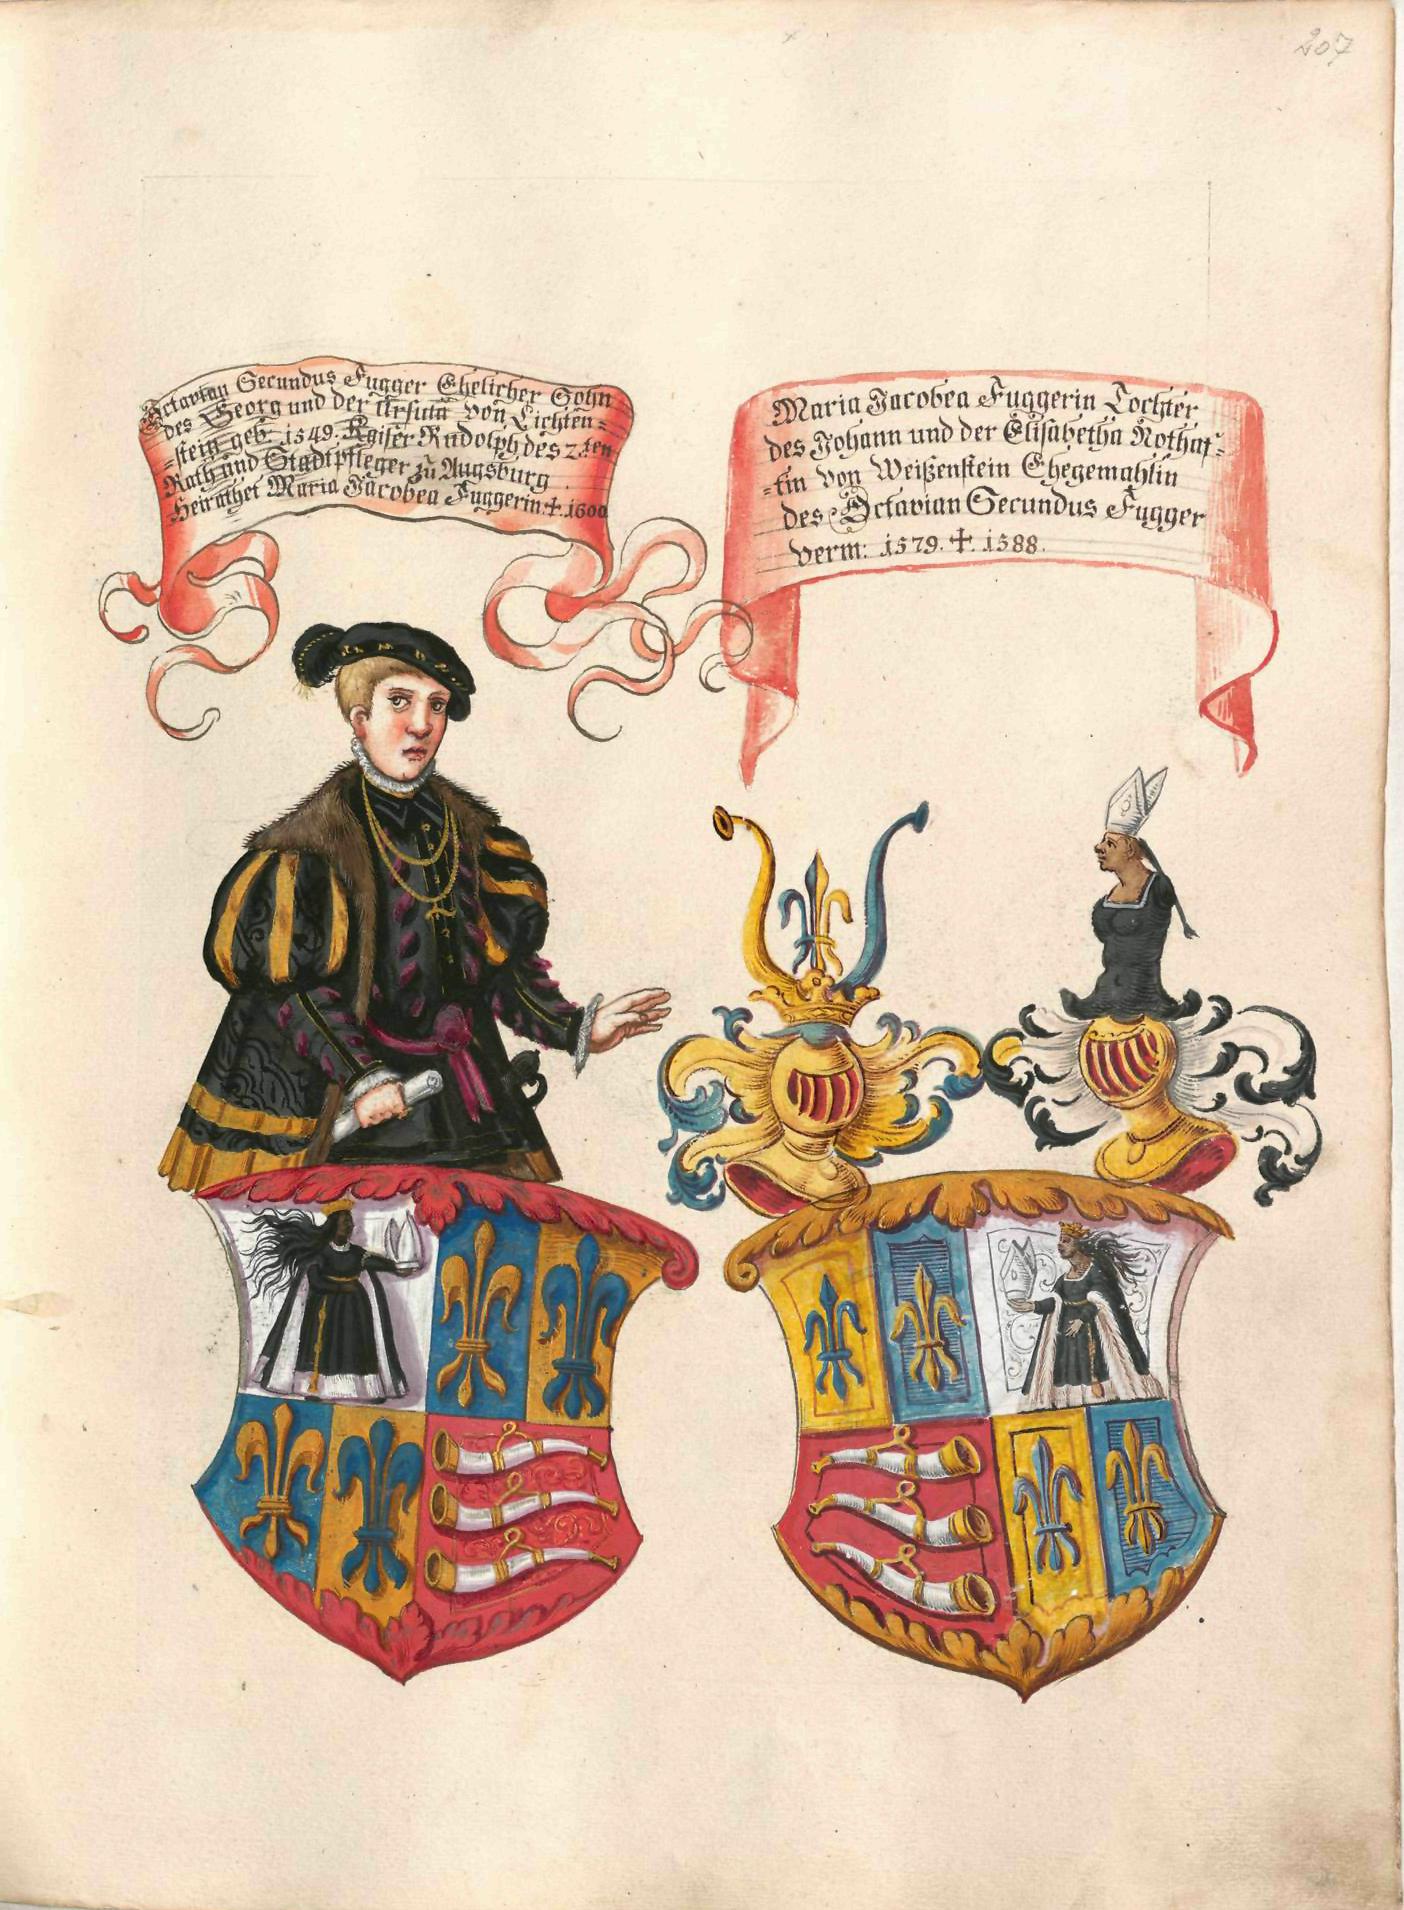 207
Octavian Secundus Fugger Ehelicher Sohn
des Georg und der Ursula von Lichten=
=stein geb: 1549. Kaiser Rudolph des 2.ten
Rath und Stadtpfleger zu Augsburg
Heirathet Maria Jacobea Fuggerin. ✝. 1600
Maria Jacobea Fuggerin Tochter
des Johann und der Elisabetha Nothaf=
=tin von Weißenstein Ehegemahlin
des Octavian Secundus Fugger
verm: 1579. ✝. 1588.